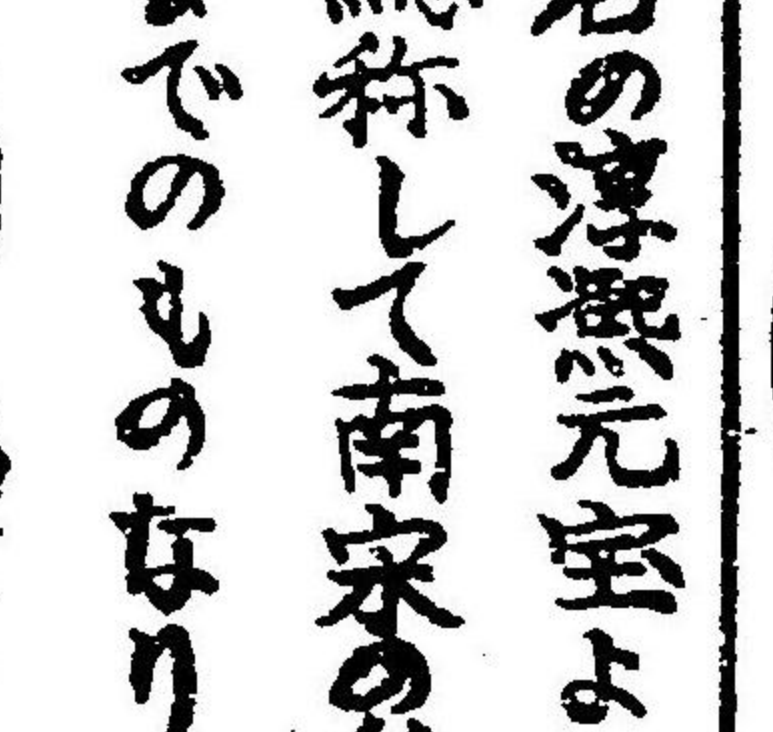 の淳凞元宝よ
称して南宋の
でのものなり